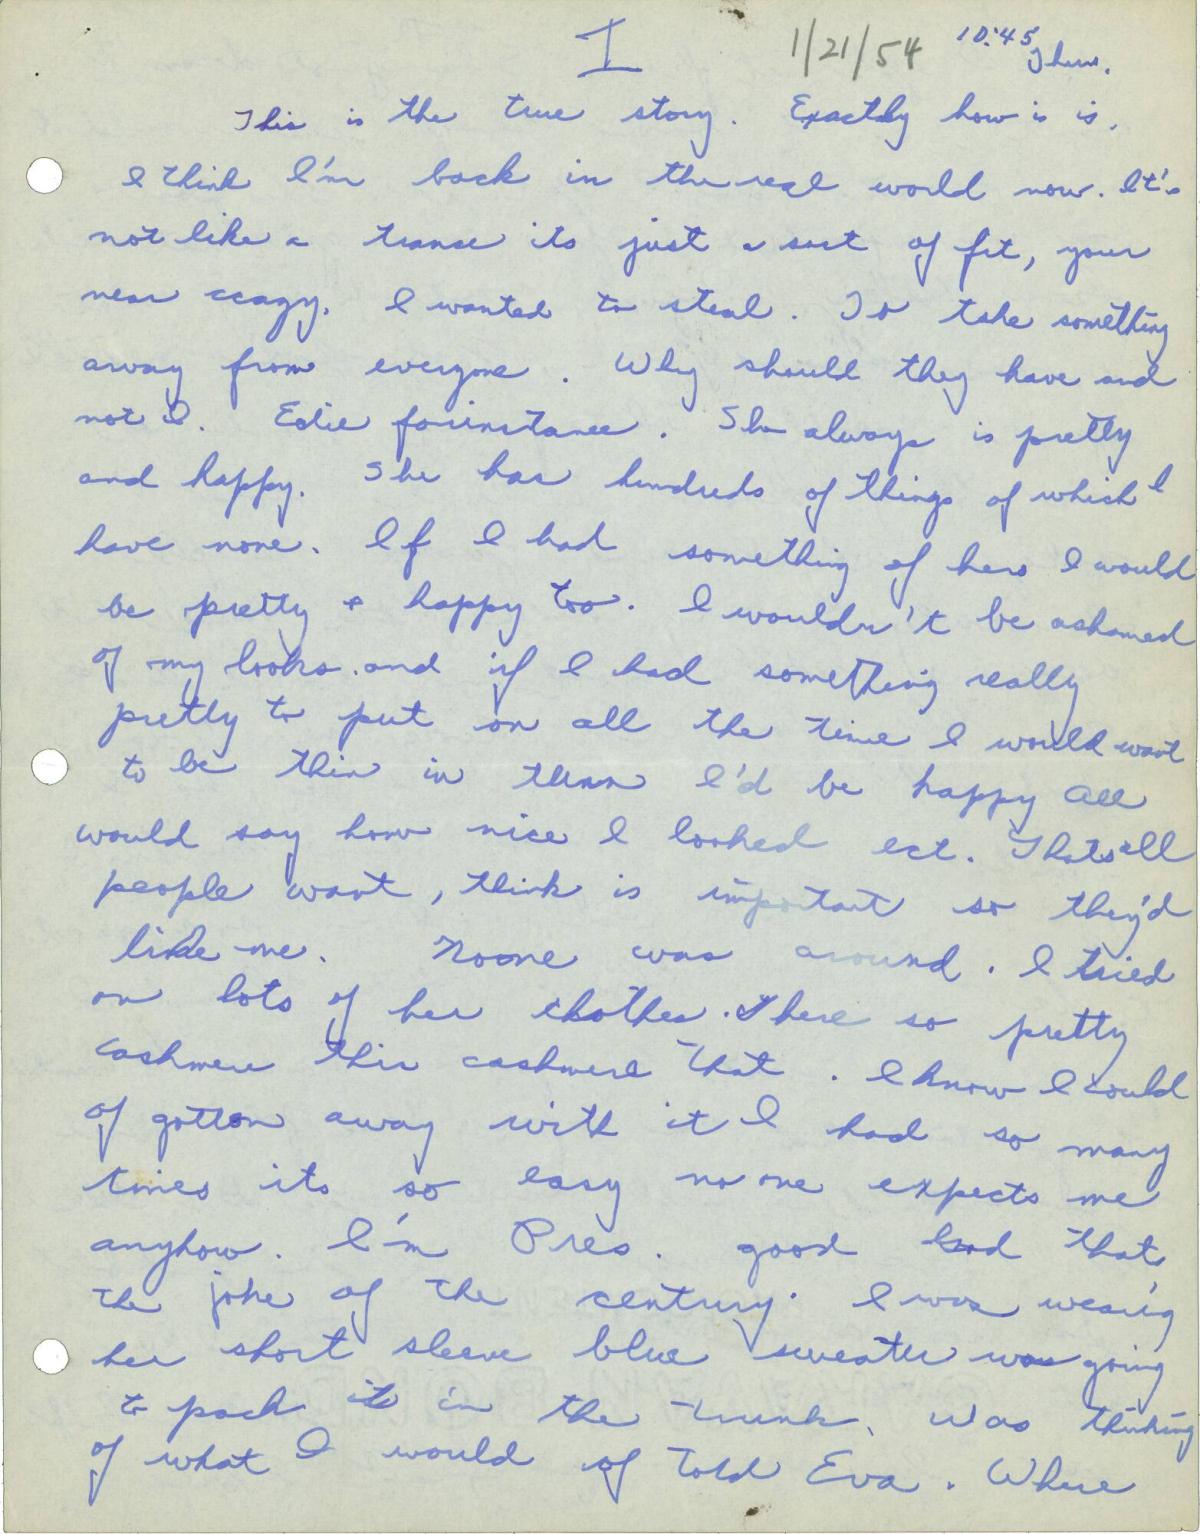 I
1/21/54 10:45 Thur.
This is the true story. Exactly how is is.
I think I'm back in the real world now. It's
not like a transe its just a sort of fit, your
near crazy. I wanted to steal. To take something
away from everyone. Why should they have and
not I. Edie forinstance. She always is pretty
and happy. She has hundreds of things of which I
have none. If I had something of hers I would
be pretty + happy too. I wouldn't be ashamed
of my looks. and if I had something really
pretty to put on all the time I would want
to be thin in turn I'd be happy All
would say how nice I looked ect. Thats all
people want, think is important so they'd
like me. Noone was around. I tried
on lots of her clothes. There so pretty
cashmere this cashmere that. I know I could
of gotton away with it I had so many
times its so easy no one expects me
anyhow. I'm Pres. good God thats
the joke of the century. I was wearig
her short sleeve blue sweater was going
to pack it in the trunk. Was thinking
of what I would of told Eva. Where